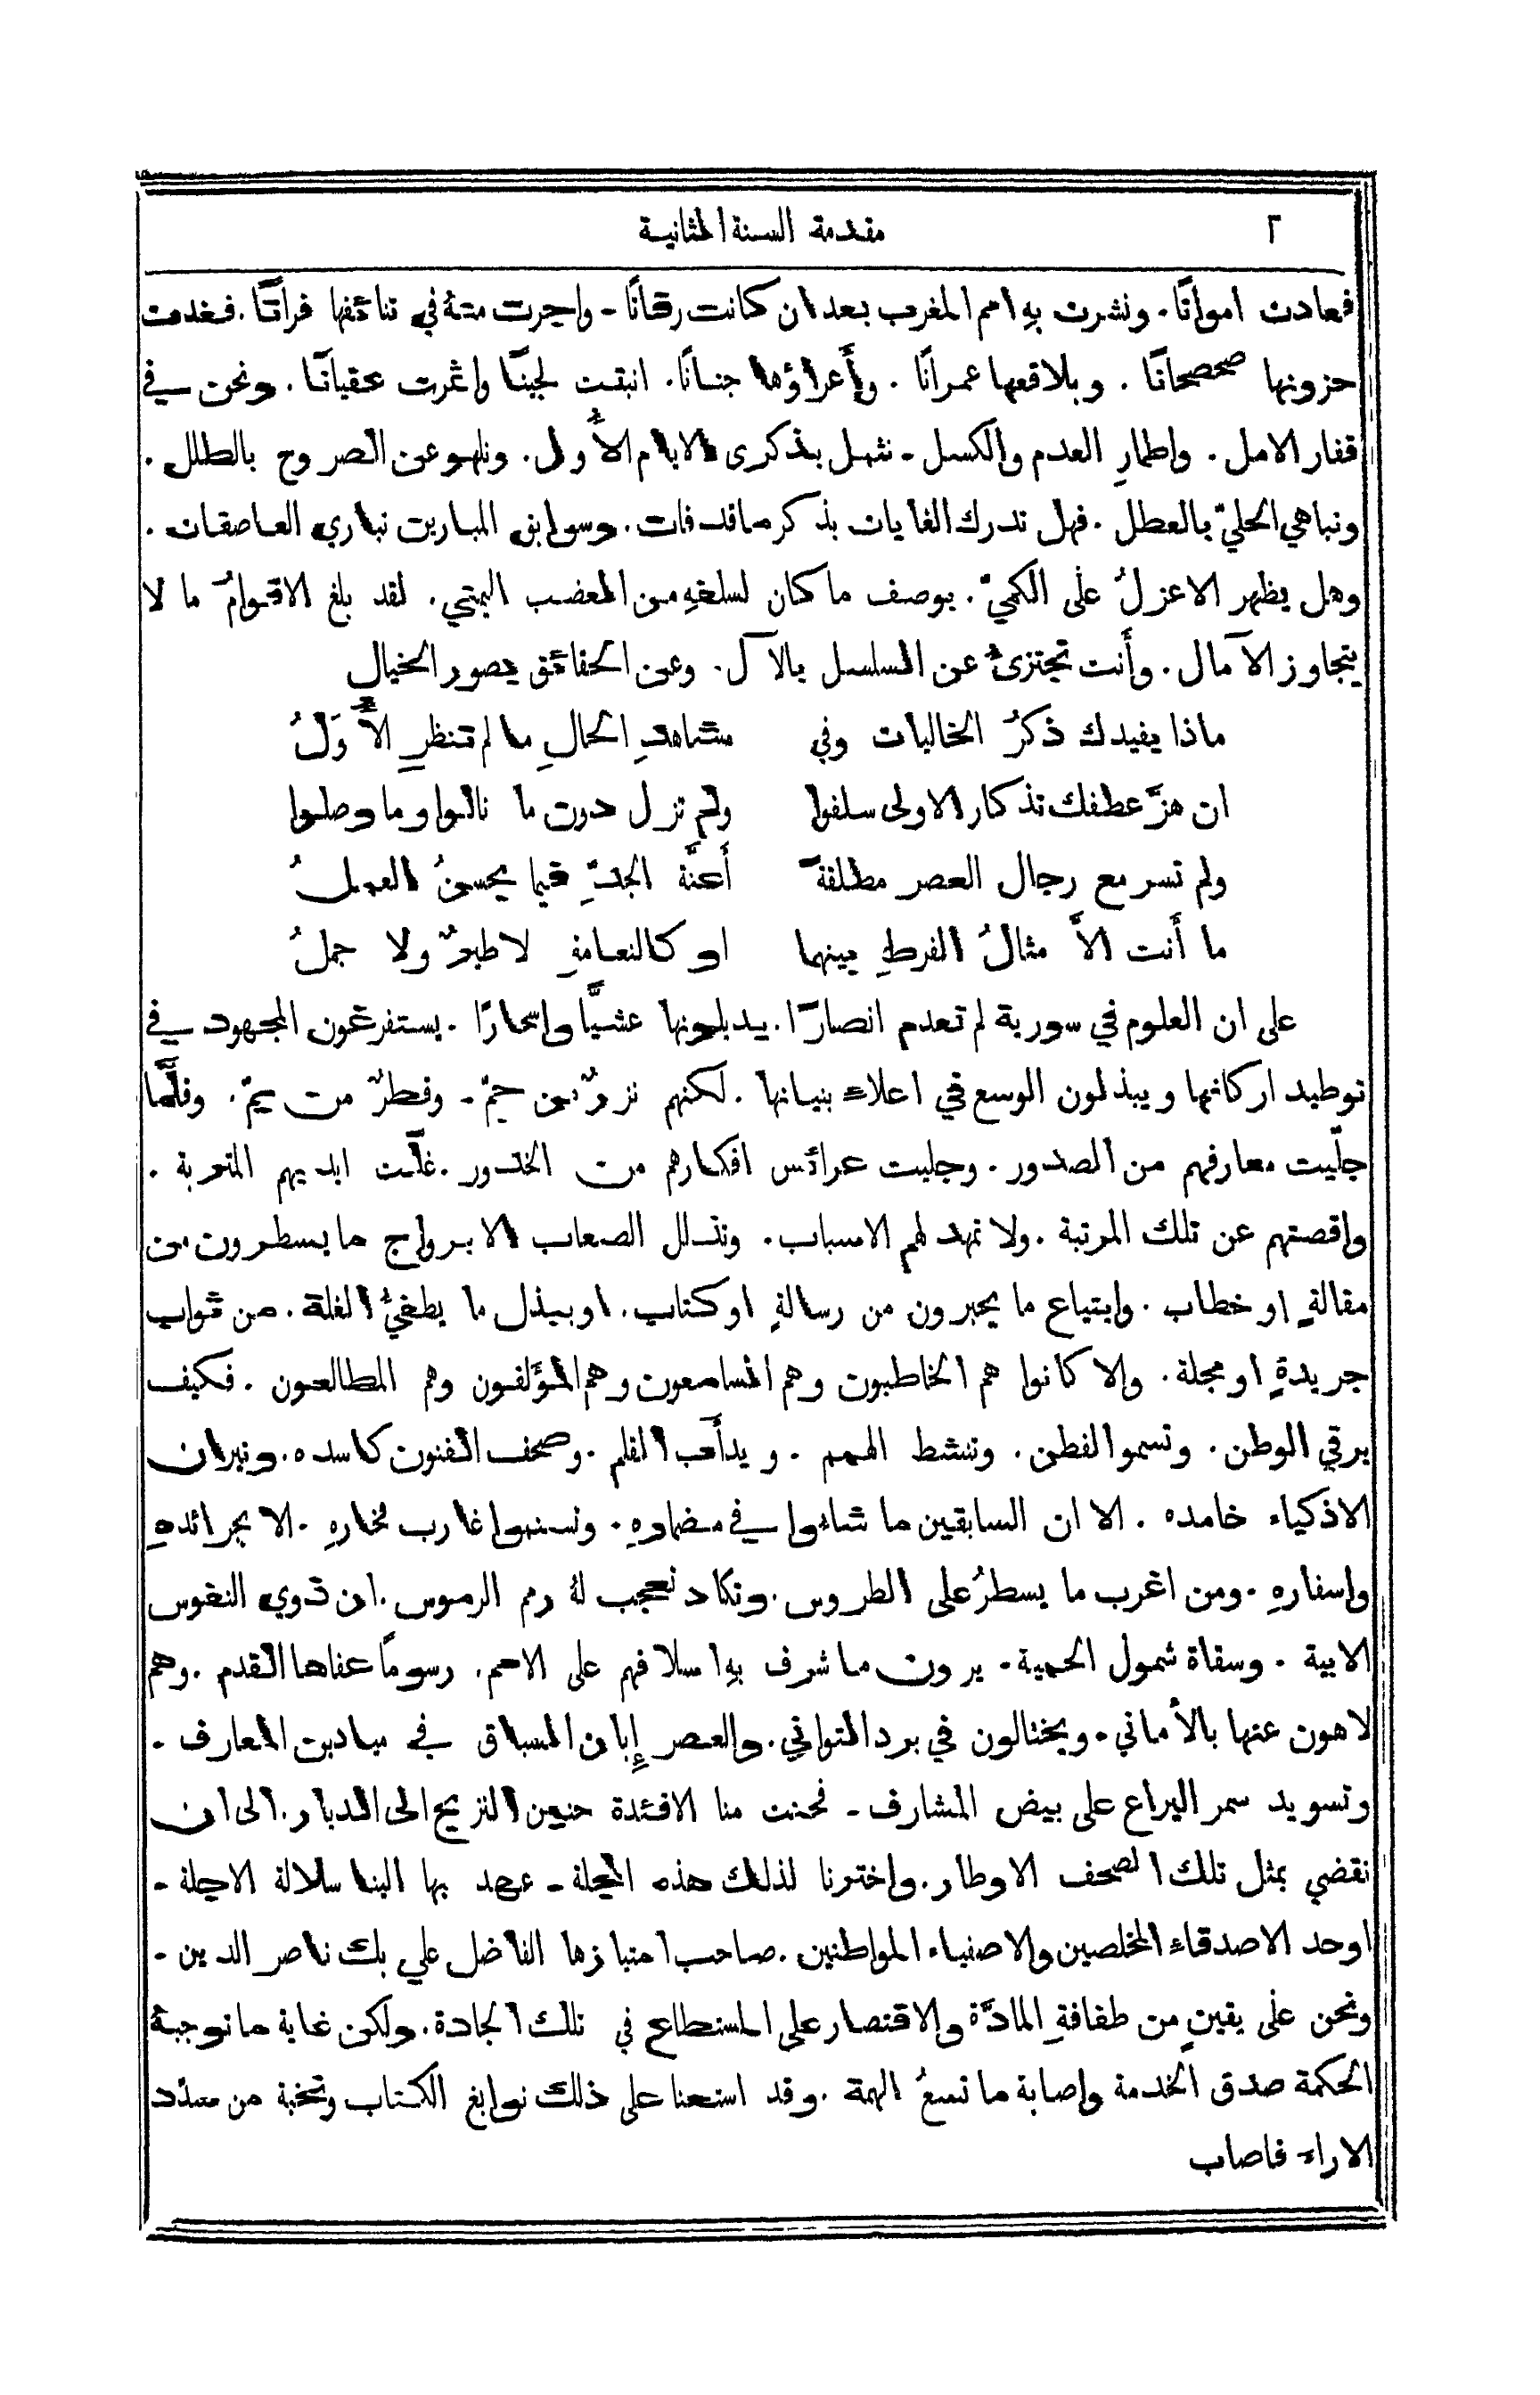 ٢
مقدمة السنة الثانية
فعادت امواتًا. ونشرت بهِ امم المغرب بعد ان كانت رفاتًا. واجرت منهُ في تنائفها فراتًا. فغدت
حزونها صحصحانًا. وبلاقعها عمرانًا. وأعراؤها جنانًا. انبتت لجينًا واثمرت عقيانًا. ونحن في
قفار الامل. واطمارِ العدم والكسل. نثمل بذكرى الايام الأُول. ونلهو عن الصروح بالطلل.
ونباهي الحليّ بالعطل. فهل تدرك الغايات بذكر ما قد فات. وسوابق المبارين تباري العاصفات.
وهل يظهر الاعزلُ على الكميّ. بوصف ما كان لسلفهِ من العضب اليمني. لقد بلغ الاقوامُ ما لا
يتجاوز الآمال. وأَنت تجتزئُ عن السلسل بالآل. وعن الحقائق بصور الخيال
ماذا يفيدك ذكرُ الخاليات وفي مشاهدِ الحالِ ما لم تنظرِ الأُوَلُ
ان هزَّ عطفك تذكار الاولى سلفوا ولم تزل دون ما نالوا وما وصلوا
ولم تسر مع رجال العصر مطلقةً أَعنَّة الجدِّ فيما يحسنُ العملُ
ما أَنت الاَّ مثالُ الفرطِ بينهما او كالنعامةِ لا طيرٌ ولا جملُ
على ان العلوم في سورية لم تعدم انصارًا. يدبلونها عشيًّا واسحارًا. يستفرغون المجهود في
توطيد اركانها ويبذلون الوسع في اعلاء بنيانها. لكنهم نزرٌ من جمّ. وقطرٌ من يمّ. وقلَّما
جلّيت معارفهم من الصدور. وجليت عرائس افكارهم من الخدور. غلّت ايديهم المتربة.
واقصتهم عن تلك المرتبة. ولا تمهد لهم الاسباب. وتذلل الصعاب الا برواج ما يسطرون من
مقالةٍ او خطاب. وابتياع ما يحبرون من رسالةٍ او كتاب. او ببذل ما يطفيُ الغلة. من ثواب
جريدةٍ او مجلة. والا كانوا هم الخاطبون وهم السامعون وهم المؤَلفون وهم المطالعون. فكيف
يرقي الوطن. وتسمو الفطن. وتنشط الهمم. ويدأَب القلم. وصحف الفنون كاسده. ونيران
الاذكياء خامده. الا ان السابقين ما شاءوا في مضمارهِ. وتسنموا غارب فخارهِ. الا بجرائدهِ
واسفارهِ. ومن اغرب ما يسطرُ على الطروس. وتكاد تعجب لهُ رمم الرموس. ان ذوي النفوس
الابية. وسقاة شمول الحمية. يرون ما شرف بهِ اسلافهم على الامم. رسومًا عفاها القدم. وهم
لاهون عنها بالأَماني. ويختالون في برد التواني. والعصر إِبان السباق في ميادين المعارف.
وتسويد سمر اليراع على بيض المشارف. فحنت منا الافئدة حنين النزيح الى الديار. الى ان
نقضي بمثل تلك الصحف الاوطار. واخترنا لذلك هذه المجلة. عهد بها الينا سلالة الاجلة.
اوحد الاصدقاء المخلصين والاصفياء المواطنين. صاحب امتيازها الفاضل علي بك ناصر الدين.
ونحن على يقينٍ من طفافةِ المادَّة والاقتصار على المستطاع في تلك الجادة. ولكن غاية ما توجبهُ
الحكمة صدق الخدمة واصابة ما تسعُ الهمة. وقد استعنا على ذلك نوابغ الكتاب ونخبة من سدَّد
الاراء فاصاب